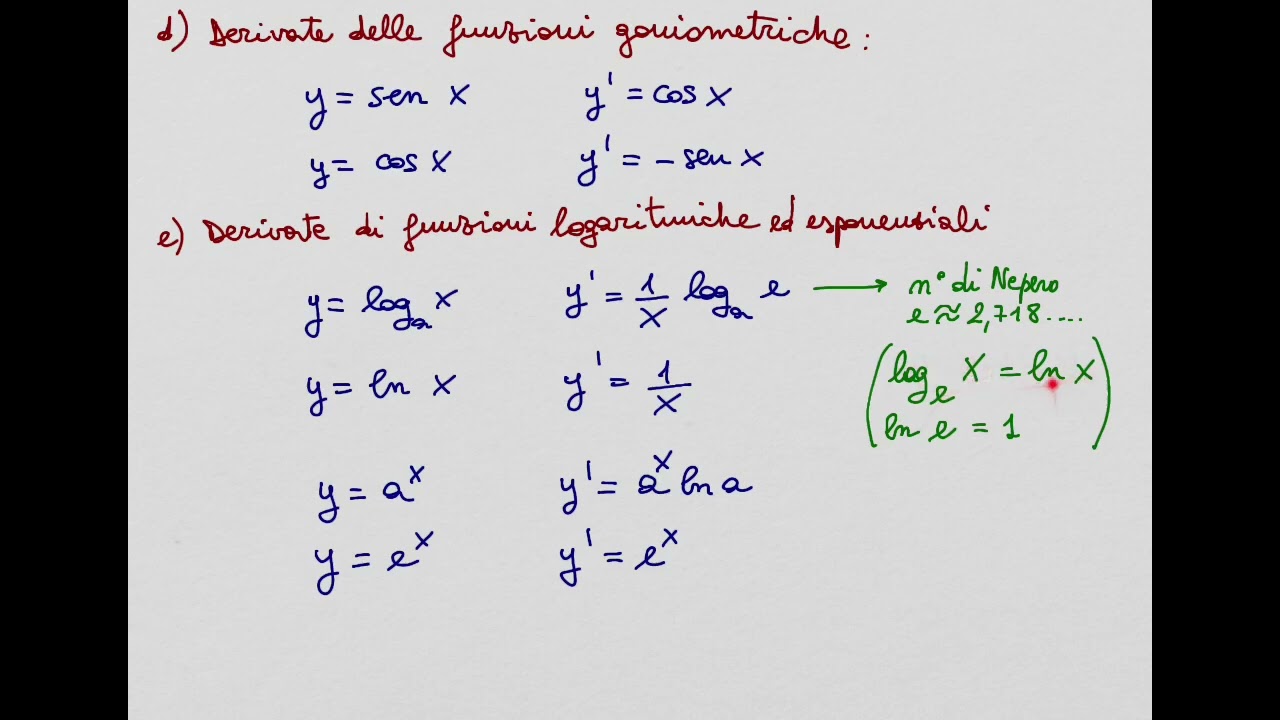 d) Derivate delle funzioni goniometriche:
y = sen x y' = cos x
y = cos x y' = - sen x
e) Derivate di funzioni logaritmiche ed esponenziali
y = logₐ x y' = 1/x logₐ e → n° di Nepero
e ≈ 2,718....
y = ln x y' = 1/x (logₑ x = ln x
ln e = 1)
y = aˣ y' = aˣ ln a
y = eˣ y' = eˣ